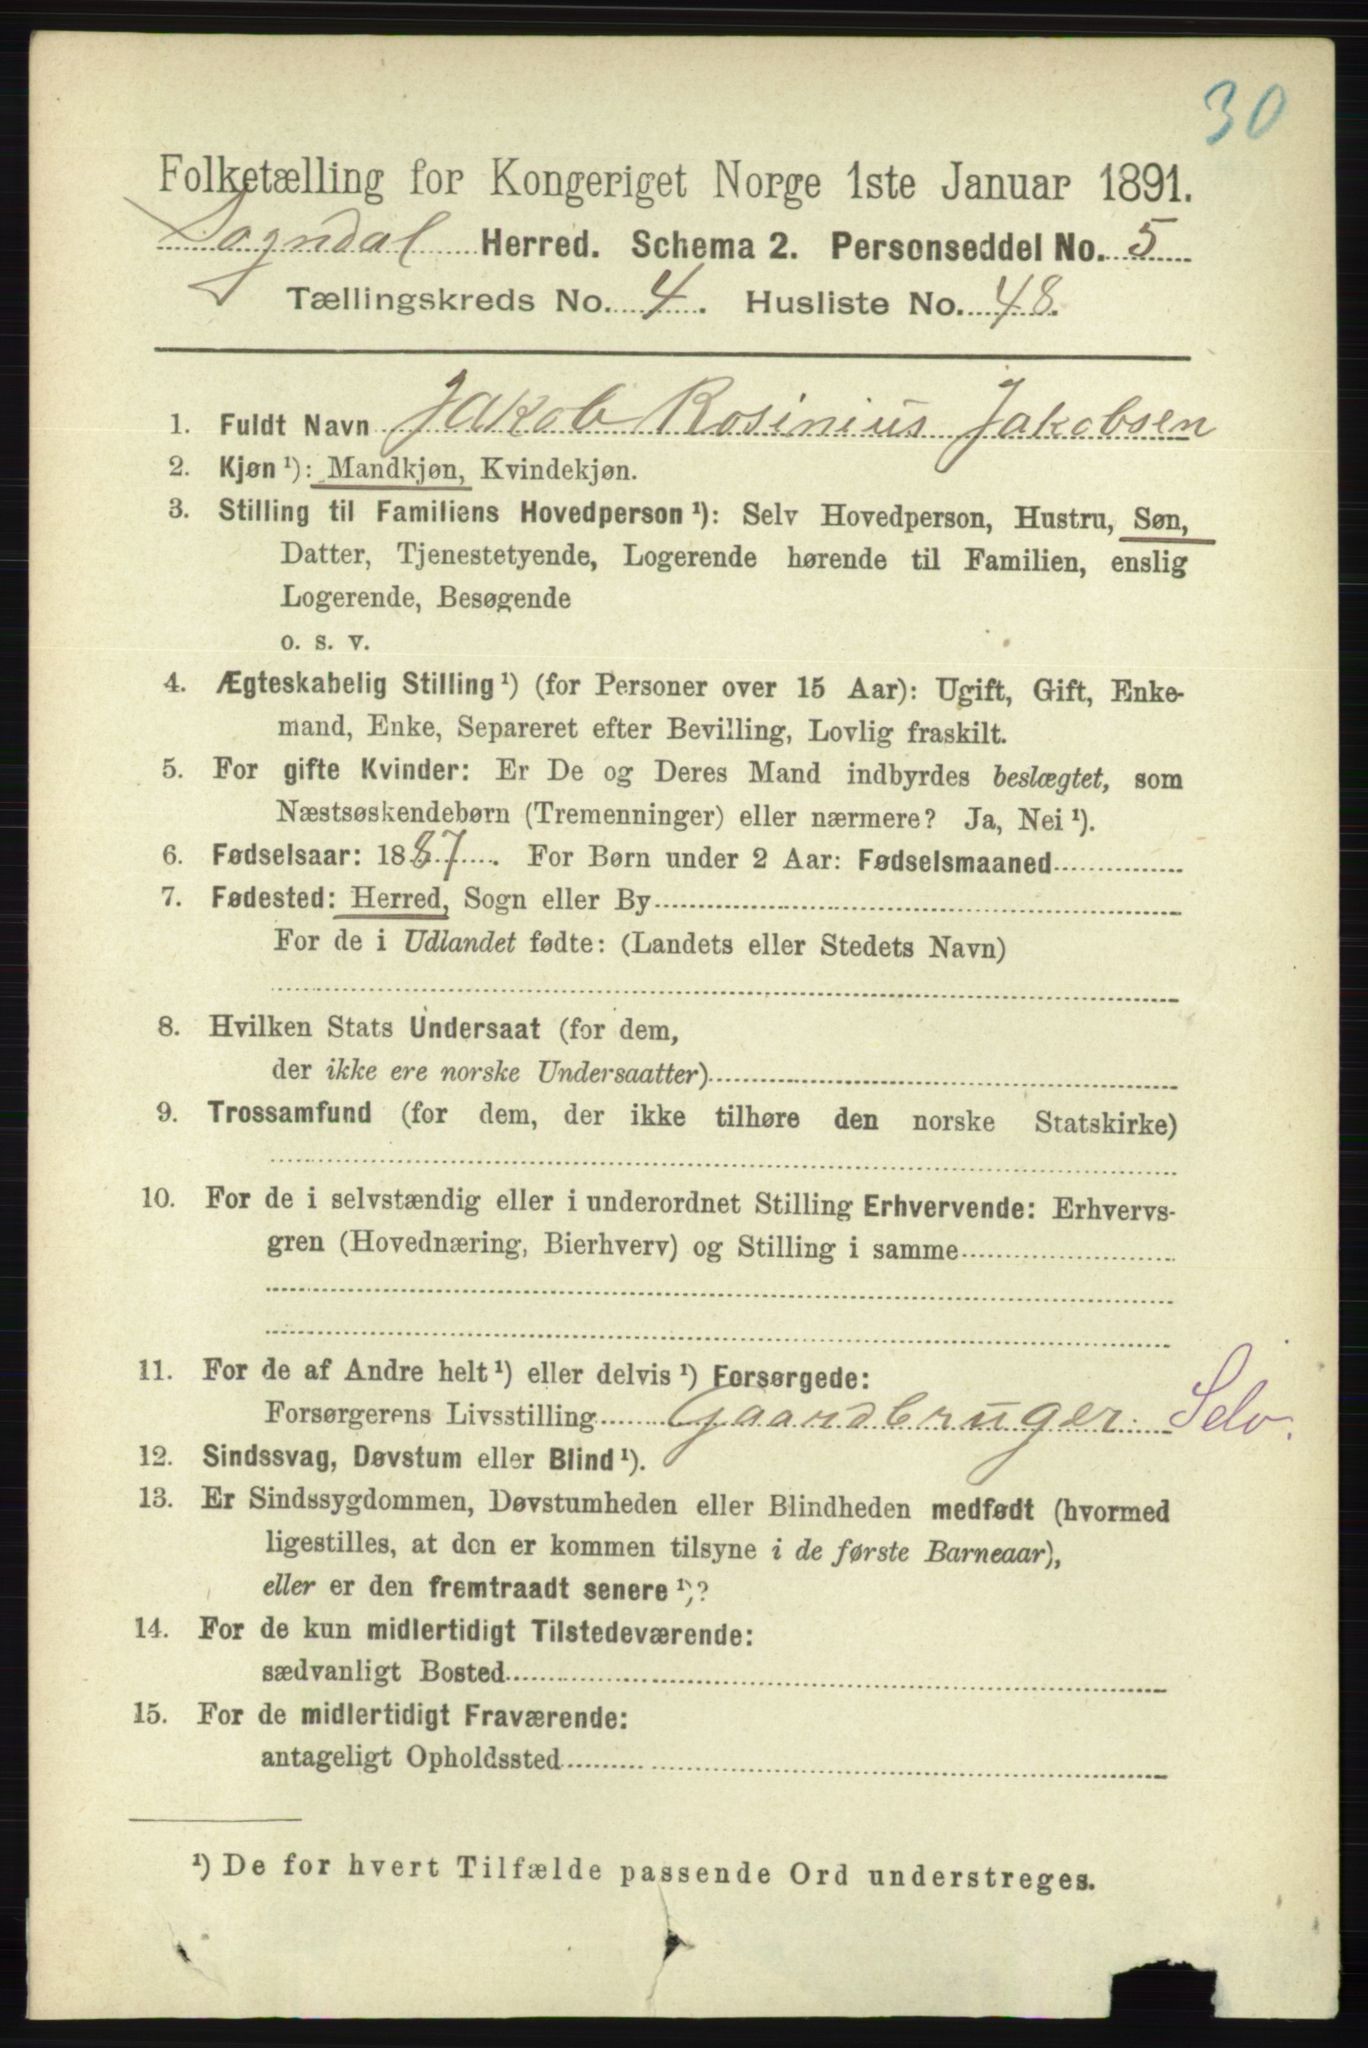 30
Folketælling for Kongeriget Norge 1ste Januar 1891.
Sogndal Herred. Schema 2. Personseddel No. 5
Tællingskreds No. 4. Husliste No. 48.
1. Fuldt Navn Jakob Rosinius Jakobsen
2. Kjøn ¹): Mandkjøn, Kvindekjøn.
3. Stilling til Familiens Hovedperson ¹): Selv Hovedperson, Hustru, Søn,
Datter, Tjenestetyende, Logerende hørende til Familien, enslig
Logerende, Besøgende
o. s. v.
4. Ægteskabelig Stilling ¹) (for Personer over 15 Aar): Ugift, Gift, Enke-
mand, Enke, Separeret efter Bevilling, Lovlig fraskilt.
5. For gifte Kvinder: Er De og Deres Mand indbyrdes beslægtet, som
Næstsøskendebørn (Tremenninger) eller nærmere? Ja, Nei ¹).
6. Fødselsaar: 1887. For Børn under 2 Aar: Fødselsmaaned
7. Fødested: Herred, Sogn eller By
For de i Udlandet fødte: (Landets eller Stedets Navn)
8. Hvilken Stats Undersaat (for dem,
der ikke ere norske Undersaatter)
9. Trossamfund (for dem, der ikke tilhøre den norske Statskirke)
10. For de i selvstændig eller i underordnet Stilling Erhvervende: Erhvervs-
gren (Hovednæring, Bierhverv) og Stilling i samme
11. For de af Andre helt ¹) eller delvis ¹) Forsørgede:
Forsørgerens Livsstilling Gaardbruger. Selv.
12. Sindssvag, Døvstum eller Blind ¹).
13. Er Sindssygdommen, Døvstumheden eller Blindheden medfødt (hvormed
ligestilles, at den er kommen tilsyne i de første Barneaar),
eller er den fremtraadt senere ¹)?
14. For de kun midlertidigt Tilstedeværende:
sædvanligt Bosted
15. For de midlertidigt Fraværende:
antageligt Opholdssted
¹) De for hvert Tilfælde passende Ord understreges.